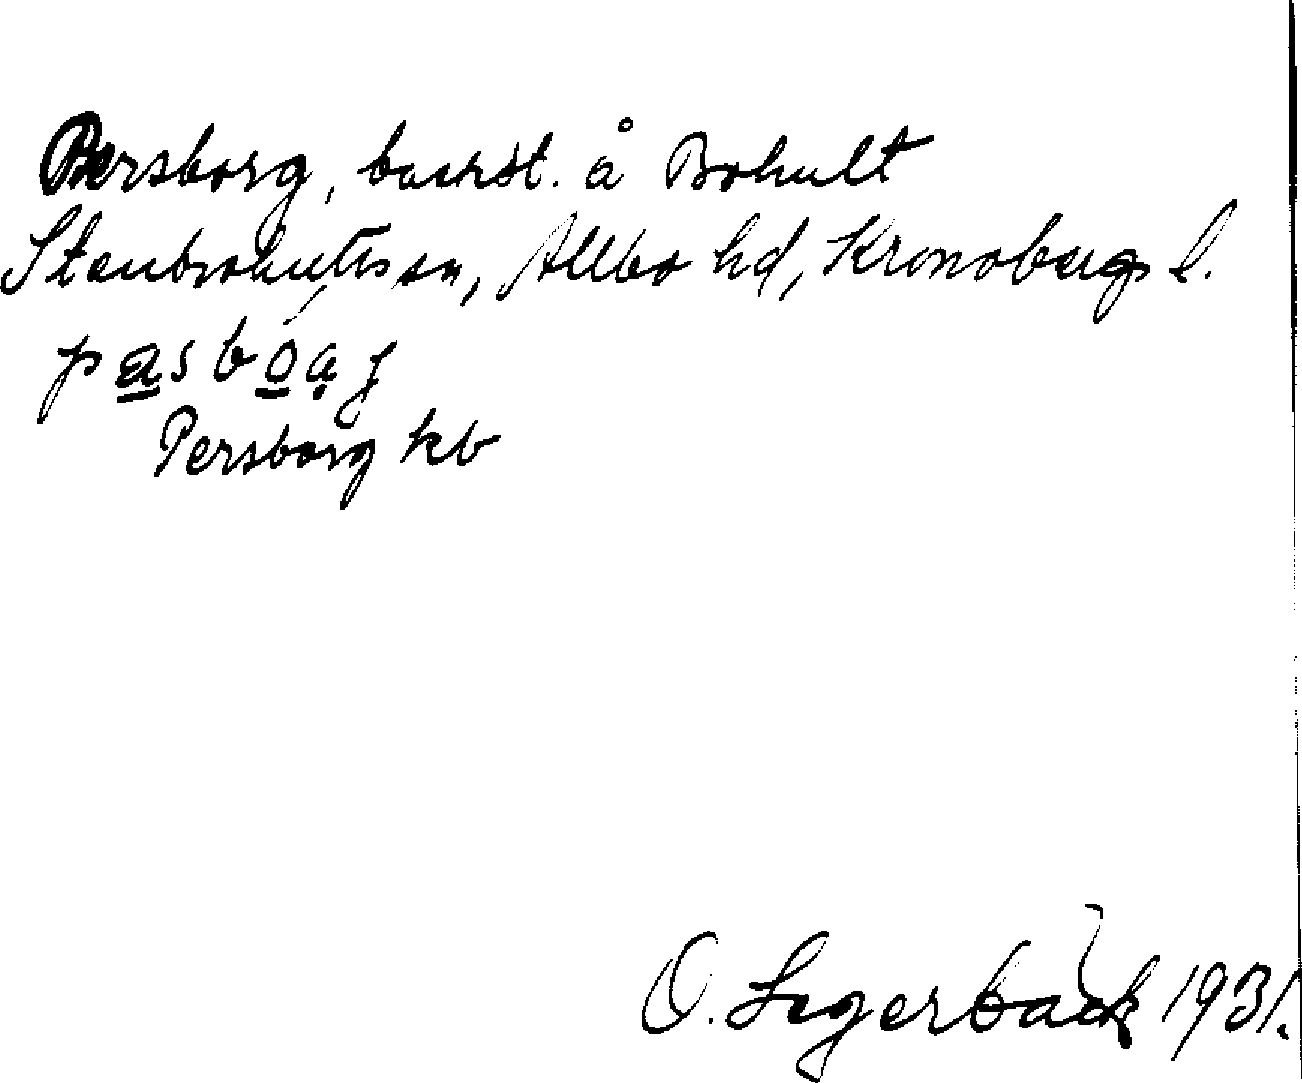 Persborg, backst. å Bohult
Stenbrohults sn, Allbo hd, Kronobergs l.
pasbóạʒ
Persborg kb
O. Segerbäck 1931.